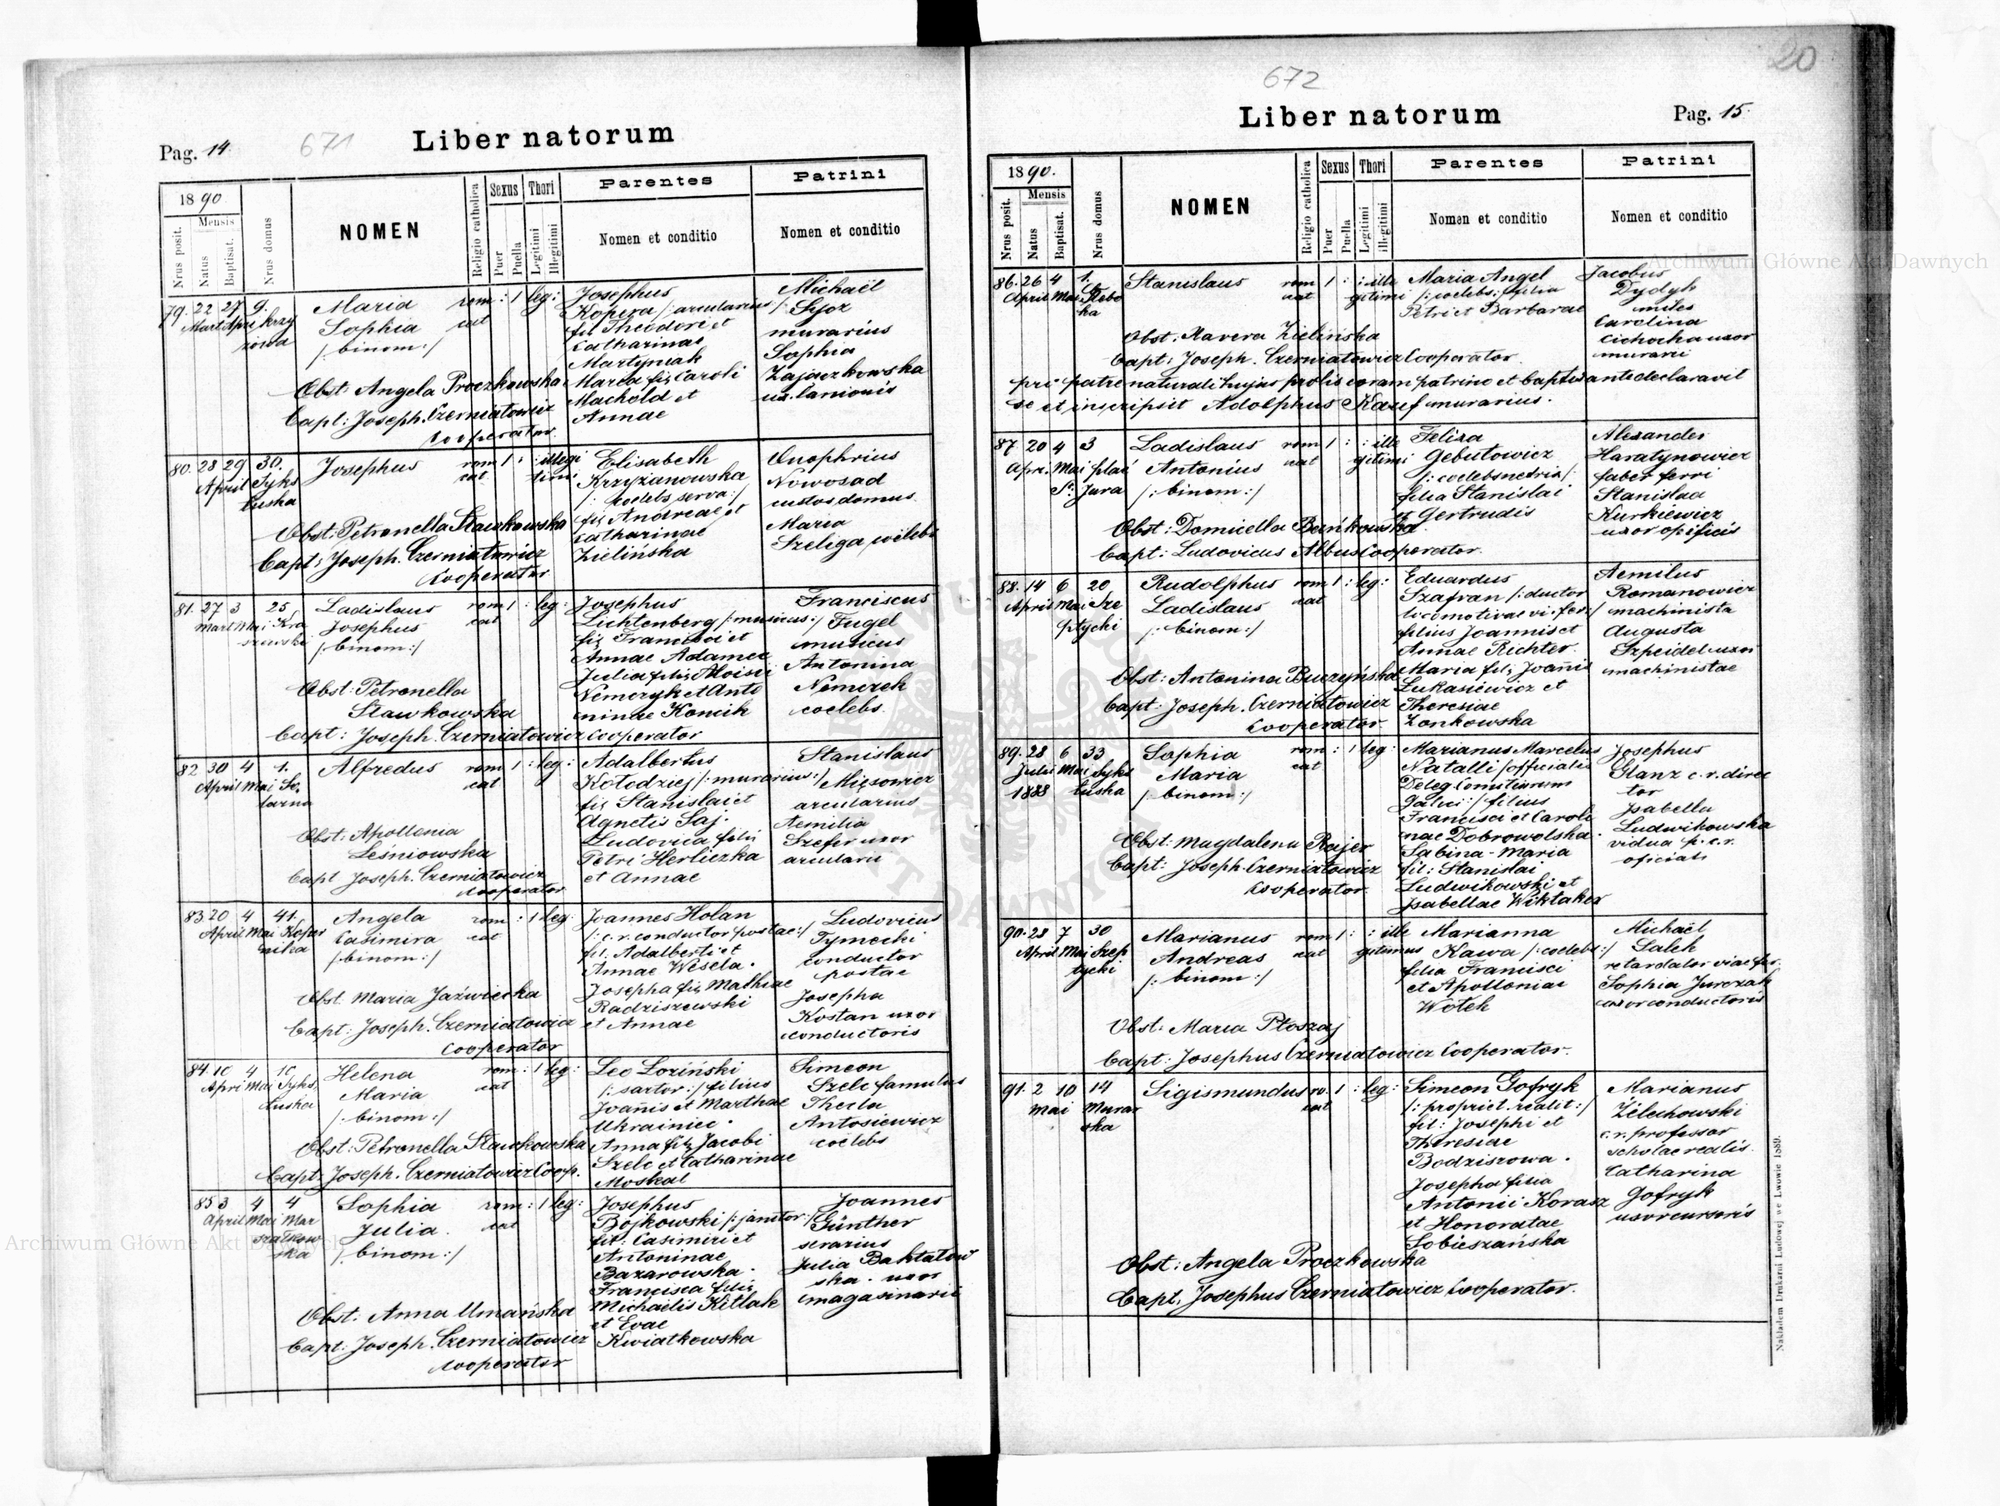 671
Liber natorum
Pag. 14.
1890.
Mensis
Nrus posit.
Natus
Baptisat.
Nrus domus
NOMEN
Religio catholica
Sexus
Puer
Puella
Thori
Legitimi
Illegitimi
Parentes
Nomen et conditio
Patrini
Nomen et conditio
79. 22 27 9. Maria rom : 1 leg: Josephus Michaël
Mart Apri krzy Sophia cat Kopera /: arcularius :/ Syoz
zowa /: binom :/ fil Theodori et murarius
Catharinae Sophia
Martyniak Zajaczkowska
Obst Angela Proczkowska Maria fil Caroli ux. lanionis
Bapt: Joseph. Czerniatowicz Machold et
Cooperator Annae
80. 28 29 30. Josephus rom 1 : : illegi Elisabeth Onophrius
April Syks cat timi Krzyżanowska Nowosad
tuska /: coelebs serva :/ custos domus
fil Andreae et Maria
Obst: Petronella Stawkowska Catharinae Szeliga coelebs
Bapt: Joseph. Czerniatowicz Zielińska
Cooperator
81. 27 3 25. Ladislaus rom 1 : leg: Josephus Franciscus
Mart Mai Kra Josephus cat Lichtenberg /: musicus :/ Fugel
szewski /: binom :/ fil Francisci et musicus
Annae Adamec Antonina
Julia filia Aloisii Nemezek
Obst: Petronella Nemezyk et Anto coelebs.
Stawkowska ninae Komih
Bapt: Joseph. Czerniatowicz Cooperator
82 30 4 1. Alfredus rom 1 : leg: Adalbertus Stanislaus
April Mai So, cat Kołodziej /: murarius :/ Mięsowicz
larna fil Stanislai et arcularius
Agnetis Saj. Aemilia
Obst: Apollonia Ludovica filia Szefer uxor
Leśniowska Petri Herliczka arcularii
Bapt Joseph. Czerniatowicz et Annae
Cooperator
83. 20 4 41. Angela rom : 1 leg: Joannes Holan Ludovicus
April Mai Koper Casimira cat /: c. r. conductor postae :/ Tymecki
nika /: binom :/ fil. Adalberti et conductor
Annae Wesela. postae
Obst. Maria Jaźwiecka Josepha fil Mathiae Josepha
Bapt: Joseph. Czerniatowicz Radziszewski Kostan uxor
Cooperator et Annae conductoris
84. 10 4 10 Helena rom : 1 leg: Leo Loziński Simeon
Apri Mai Syks, Maria cat /: sartor :/ filius Szelc famulus
tuska /: binom :/ Joañis et Marthae Thecla
Ukrainiec. Antosiewicz
Obst: Petronella Stawkowska Anna fil Jacobi coelebs
Bapt: Joseph. Czerniatowicz Coop. Szelc et Catharinae
Moskal
85 3 4 4 Sophia rom : 1 leg: Josephus Joannes
April Mai Mar Julia. cat Bojkowski /: janitor :/ Günther
szałkow /: binom :/ fil: Casimiri et serarius
ska Antoninae Julia Baktałow
Bazarowska. ska. uxor
Francisca filia magasinarii
Obst: Anna Umańska Michaelis Kitlak
Bapt: Joseph. Czerniatowicz et Evae
Cooperator Kwiatkowska
20
672
Liber natorum
Pag. 15.
1890.
Mensis
Nrus posit.
Natus
Baptisat.
Nrus domus
NOMEN
Religio catholica
Sexus
Puer
Puella
Thori
Legitimi
illegitimi
Parentes
Nomen et conditio
Patrini
Nomen et conditio
86. 26 4 1. Stanislaus rom 1 : : ille Maria Angel Jacobus
April Mai cat gitimi /: coelebs :/ filia Dydyk
Petri et Barbarae miles
Obst: Xavera Zielińska Carolina
Bapt: Joseph. Czerniatowicz Cooperator. Cichocka uxor
murarii
pro patre naturali hujus prolis coram patrino et baptisante declaravit
se et inscripsit Adolphus Kauf murarius.
87. 20 4 3 Ladislaus rom 1 : : ille Felixa Alexander
Apri. Mai plac Antonius cat gitimi Gebutowicz Haratynowicz
St: Jura /: binom :/ /: coelebs netria :/ faber ferri
filia Stanislai Stanislaa
et Gertrudis Kurkiewicz
Obst: Domicella Bańkowska uxor opificis
Bapt: Ludovicus Albus Cooperator.
88. 14 6 20 Rudolphus rom 1 : leg: Eduardus Aemilus
April Mai Sze Ladislaus cat Szafran /: ductor Romanowicz
ptycki /: binom :/ locomotivae vi: fer: :/ machinista
filius Joannis et Augusta
Annae Richter. Szpeidel uxor
Obst: Antonina Buczyńska Maria fil: Joañis machinistae
Bapt: Joseph. Czerniatowicz Lukasiewicz et
Cooperator. Theresiae
Zonkowska
89. 28 6 33 Sophia rom : 1 leg: Marianus Marcelus Josephus
Julii Mai Syks Maria cat Natalli /: officialis Glanz c. r. direc
1888 tuska /: binom :/ Deleg Comitiorum tor
Galic: :/ filius Isabella
Francisci et Caroli Ludwikowska
nae Dobrowolska. vidua p. c. r.
Obst: Magdalena Rajer Sabina-Maria oficiati
Bapt: Joseph. Czerniatowicz fil: Stanislai
Cooperator. Ludwikowski et
Isabellae Wiktaker
90. 28 7 30 Marianus rom 1 : : ille Marianna Michaël
April Mai Szep Andreas cat gitimus Kawa /: coelebs :/ Salek
tycki /: binom :/ filia Francisci retardator viae fer.
et Apolloniae Sophia Jurczak
Wotek uxor conductoris
Obst: Maria Ptoszaj
Bapt: Josephus Czerniatowicz Cooperator.
91. 2 10 14 Sigismundus ro. 1 : leg: Simeon Gofryk Marianus
Mai Murar cat /: propriet. realit :/ Żelechowski
ska fil: Josephi et c. r. professor
Theresiae scholae realis.
Bodziszowa. Catharina
Josepha filia Gofryk
Antonii Korasz uxor cursoris
et Honoratae
Sobieszańska
Obst: Angela Proczkowska
Bapt. Josephus Czerniatowicz Cooperator.
Nakładem Drukarni Ludowej we Lwowie 1889.
Archiwum Główne Akt Dawnych
Archiwum Główne Akt Dawnych